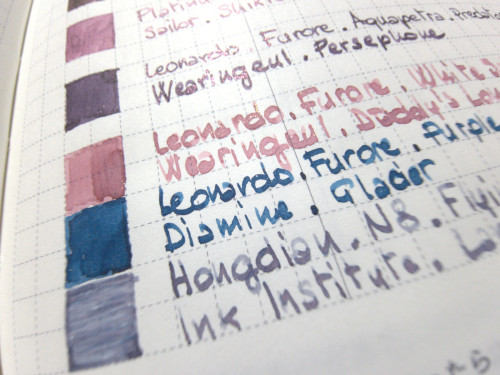 Platinu
Sailor. Shiki
Leonardo. Furore. Aquapetra.
Wearingeul. Persephone
Leonardo. Furore. White
Wearingeul. Daddy's
Leonardo. Furore. Purple
Diamine. Glacier
Hongdian. N8. Flyin
Ink Institute.